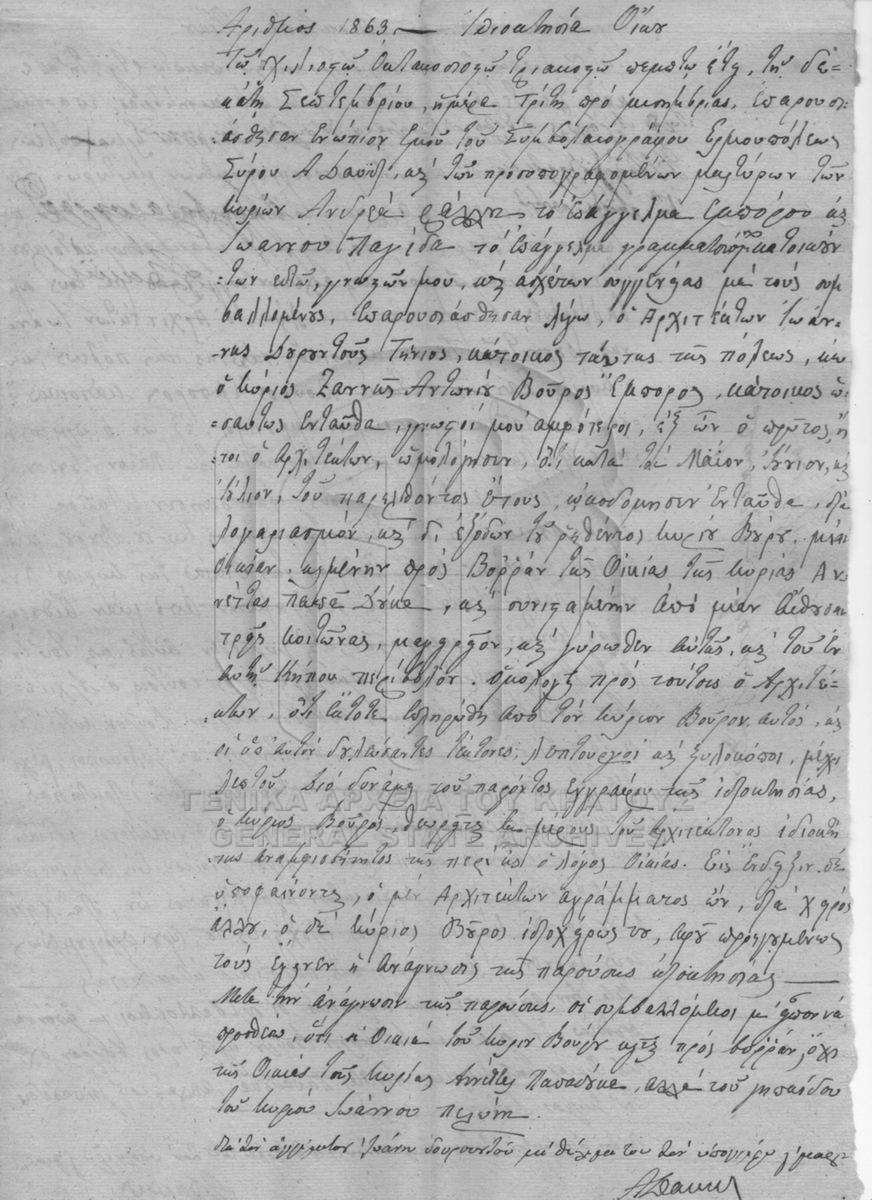 Αριθμός 1863 — Ιδιοκτησία Οίκου
Τῷ χιλιοστῷ ὀκτακοσιοστῷ τριακοστῷ πέμπτῳ ἔτει, τῇ δε=
κάτῃ Σεπτεμβρίου, ἡμέρᾳ Τρίτῃ πρό μεσημβρίας, ἐπαρουσι=
άσθησαν ἐνώπιον ἐμοῦ τοῦ Συμβολαιογράφου Ερμουπόλεως
Σύρου Α Δαυίδ, καί τῶν προσυπογραφομένων μαρτύρων τῶν
κυρίων Ανδρέα Ράλλη τό ἐπάγγελμα ἐμπόρου καί
Ιωάννου Παγίδα τό ἐπάγγελμα γραμματικοῦ κατοικούν
=των εδῶ, γνωστῶν μου, καί ασχέτων συγγενείας μέ τούς συμ
βαλλομένους, ἐπαρουσιάσθησαν λέγω, ὁ Αρχιτέκτων Ιωάν-
νης Τήνιος, κάτοικος ταύτης τῆς πόλεως, καί
ὁ κύριος Ζαννῆς Αντωνίου Βοῦρος Ἔμπορος, κάτοικος ὡ
=σαύτως ἐνταῦθα, γνωστοί μου αμφότεροι, ἐξ ὧν ὁ πρῶτος, ἤ
=τοι ὁ Αρχιτέκτων, ὡμολόγησεν, ὅτι κατά τόν Μάϊον, Ἰούνιον, καί
Ἰούλιον, τοῦ παρελθόντος ἔτους, ᾠκοδόμησεν ἐνταῦθα, διά
λογαριασμόν, καί δι' ἐξόδων τοῦ ῥηθέντος κυρίου Βούρου, μίαν
οἰκίαν, κειμένην πρός Βορρᾶν τῆς Οἰκίας τῆς κυρίας Αν
νέτας Παπα , καί συνισταμένην ἀπό μίαν αἴθουσαν
τρεῖς κοιτῶνας, μαγειρεῖον, καί γύρωθεν αὐτῆς, καί τοῦ ἐν
αὐτῇ Κήπου περίβολον. Ὁμολογεῖ πρός τούτοις ὁ Αρχιτέ=
κτων, ὅτι ἔκτοτε ἐπληρώθη ἀπό τόν κύριον Βοῦρον αυτός, καί
οἱ ὑπ' αὐτόν δουλεύσαντες τέκτονες, λεπτουργοί καί ξυλοκόποι, μέχρι
λεπτοῦ. Διό δυνάμει τοῦ παρόντος ἐγγράφου τῆς ἰδιοκτησίας,
ὁ κύριος Βοῦρος, θεωρεῖται ἐκ μέρους τοῦ Αρχιτέκτονος ἰδιοκτή
της ἀναμφισβήτητος τῆς περί ἧς ὁ λόγος Οἰκίας. Εἰς ἔνδειξιν δέ
ὑποφαίνονται, ὁ μέν Αρχιτέκτων αγράμματος ὤν, διά χειρός
ἄλλου, ὁ δέ κύριος Βοῦρος ἰδιοχείρως του, αφοῦ προηγουμένως
τούς ἔγινεν ἡ ἀνάγνωσις τῆς παρούσης ἰδιοκτησίας —
Μετά τήν ἀνάγνωσιν τῆς παρούσης, οἱ συμβαλλόμενοι μέ εἶπον νά
προσθέσω, ὅτι ἡ Οἰκία τοῦ κυρίου Βούρου κεῖται πρός βορρᾶν, ὄχι
τῆς Οἰκίας τῆς κυρίας Αννέτας, ἀλλά τοῦ γηπέδου
τοῦ κυρίου Ιωάννου
Διά τόν ἀγράμματον Ἰωάννη μέ θέλημά του
ΓΕΝΙΚΑ ΑΡΧΕΙΑ ΤΟΥ ΚΡΑΤΟΥΣ
GENERAL STATE ARCHIVES